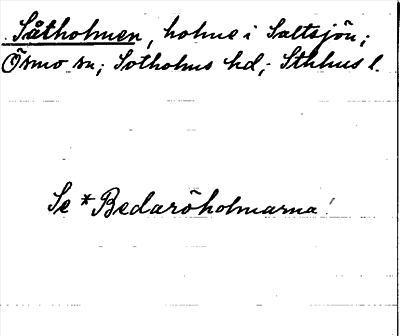 Såtholmen, holme i Saltsjön;
Ösmo sn; Sotholms hd; Sthlms l.
Se *Bedaröholmarna!